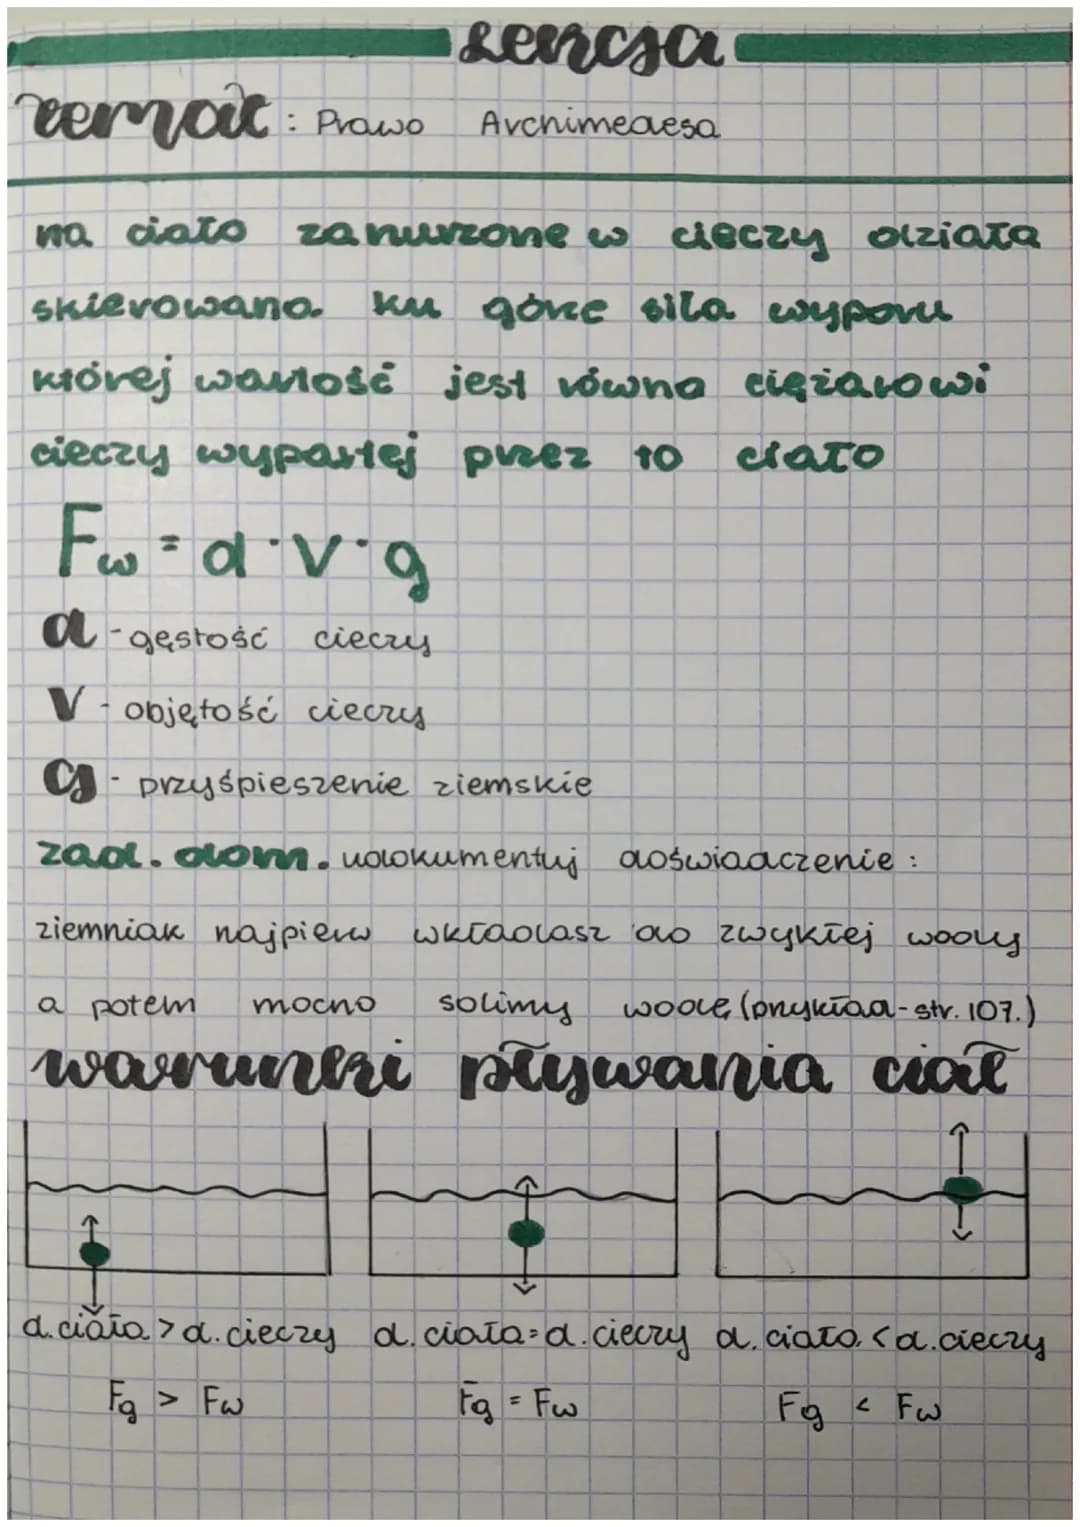 Lekcja
Temat: Prawo Archimedesa
na ciało zanurzone w cieczy działa
skierowana ku górze siła wyporu
której wartość jest równa ciężarowi
cieczy wypartej przez to ciało
Fw = d · V · g
d - gęstość cieczy
V - objętość cieczy
g - przyśpieszenie ziemskie
zad. dom. udokumentuj doświadczenie:
ziemniak najpierw wkładasz do zwykłej wody
a potem mocno solimy wodę (przykład - str. 107.)
warunki pływania ciał
d. ciała > d. cieczy d. ciała = d. cieczy d. ciała < d. cieczy
Fg > Fw Fg = Fw Fg < Fw